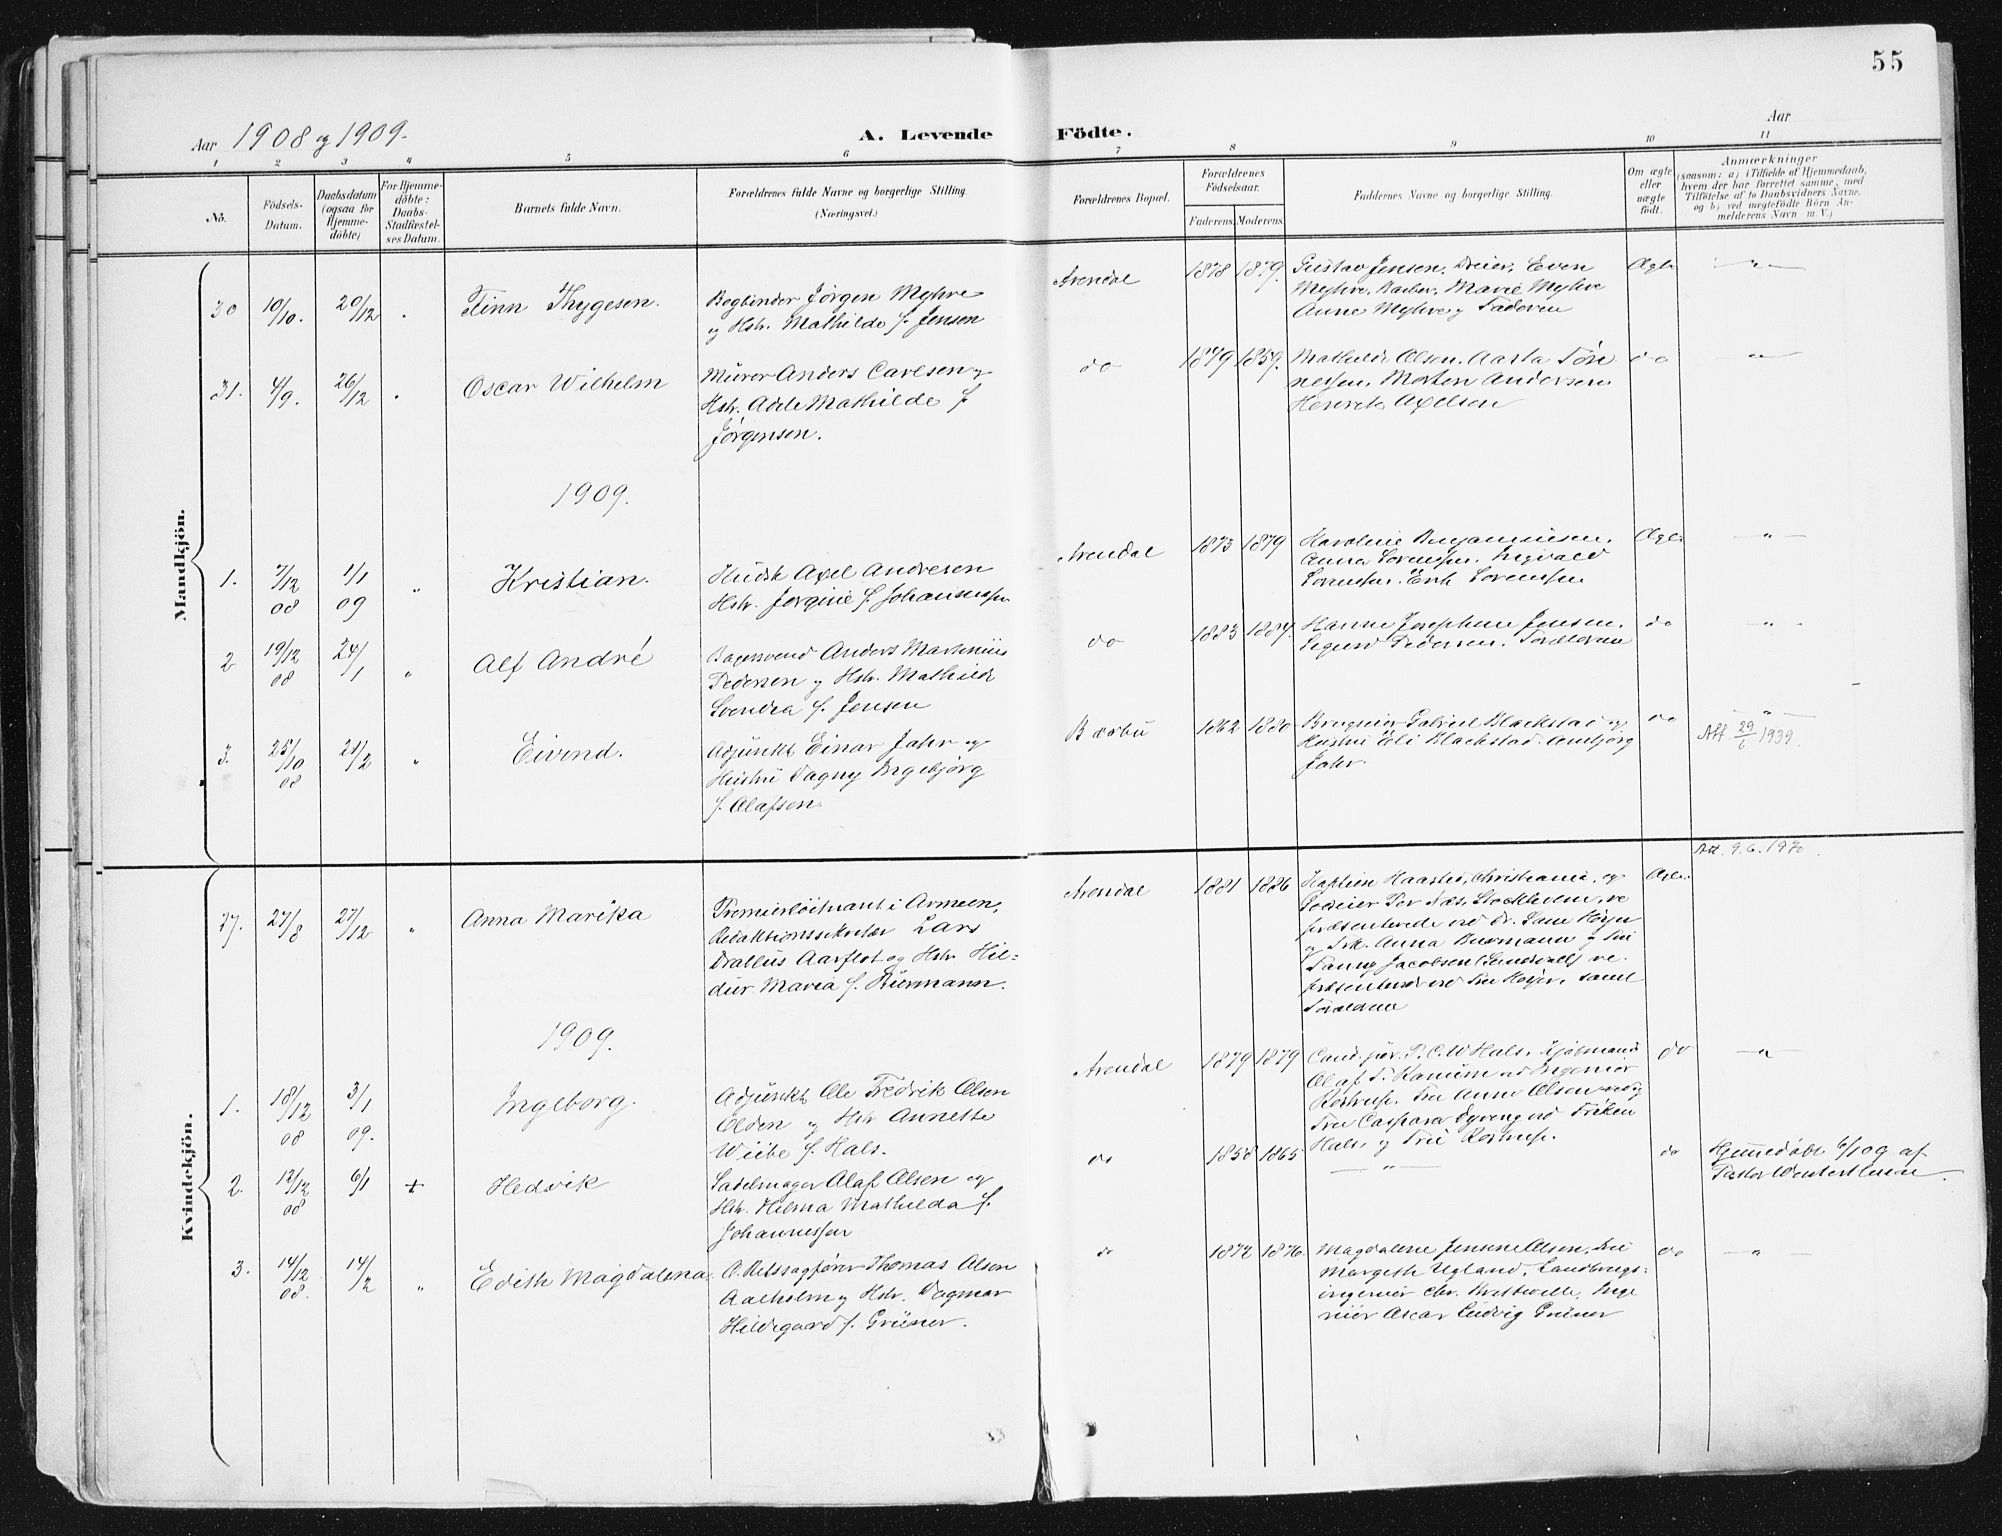 55
Aar 1908 og 1909.
A. Levende Födte.
Aar
1 2 3 4 5 6 7 8 9 10 11
No.
Födsels-Datum.
Daabsdatum (ogsaa for Hjemme-döbte)
For Hjemme-döbte: Daabs-Stadfæstel-ses Datum.
Barnets fulde Navn.
Forældrenes fulde Navne og borgerlige Stilling. (Næringsvei.)
Forældrenes Bopæl.
Forældrenes Födselsaar.
Faderens. Moderens.
Faddernes Navne og borgerlige Stilling.
Om ægte eller uægte födt.
Anmærkninger
(saasom: a) i Tilfælde af Hjemmedaab,
hvem der har forrettet samme, med
Tilföielse af to Daabsvidners Navne,
og b) ved uægtefödte Börn An-
melderens Navn m. V.)
Mandkjön.
30 10/10. 20/12 Finn Thygesen.
Bogbinder Jørgen Myhre
og Hstr. Mathilde f. Jensen
Arendal 1878 1879.
Gustav Jensen, Dreier, Even
Myhre, Barber, Marie Myhre
Anne Myhre og Faderen
Ægte
31. 4/9. 26/12 Oscar Wilhelm
Murer Anders Carlsen og
Hstr. Adle Mathilde f.
Jørgensen.
do 1879 1859.
Mathilde Olsen, Aasta Tön
nessen, Morten Andersen
Axelsen
do
1909.
1. 7/12 08 1/1 09 " Kristian.
Axel Andresen
Hstr. Jorgine f. Johannessen
Arendal 1873 1879
Anna Sorenssen, Ingvald
Sorenssen, Erik Sorenssen
Ægte
2 19/12 08 24/1 " Alf André
Bagersvend Anders Martinius
Pedersen og Hstr. Mathilde
Svendea f. Jensen
do 1883 1884.
Hanne Josephine Jensen,
Sigurd Pedersen, Forældrene
do
3. 25/10 08 21/2 " Eivind.
Adjunkt Einar Jahr og
Hustru Dagny Ingebjørg
f. Olafsen.
Barbu 1862 1880
Brugseier Gabriel Blackstad og
Hustru Eli Blackstad. Ambjörg
Jahr.
do
Att. 29/6 1939.
Kvindekjön.
37. 27/8 27/12 " Anna Marika
Premierlöitnant i Armeen,
Redaktionssekretær Lars
Aarflot og Hstr. Hil=
dur Maria f. Büermann.
Arendal 1881 1886
Kaptein Haasted, Christiania, og
Godseier Per Næs, Stockholm, re
præsenterede ved Dr.
og Frk. Anna Buermann og Fru
Fanny Jacobsen (Sundsvall) re.
præsenteret ved Fru Høyer, samt
Forældrene
Ægte
Att. 9.6.1970.
1909.
1. 18/12 08 3/1 09. Ingeborg.
Adjunkt Ole Fredrik Olsen
Olden og Hstr Annette
Wiibe f. Hals.
Arendal 1879 1879
Cand. jur. P. C. W Hals, Kjøbmand
Olaf T. Ranum ved Ingeniør
Rostrup. Fru Anne Olsen
Fru Caspara Dyreng ved Frøken
Hals, og Fru Rostrup.
do
2. 12/12 08 6/1 + Hedvik
Sadelmager Alaf Olsen og
Hstr. Hilma Mathilda f.
Johannessen
do 1858 1865
do
Hjemmedöbt 6/1 09 af
Pastor
3. 14/12 08. 14/2 " Edith Magdalena.
O. Retssagfører Thomas Olsen
Aalholm og Hstr. Dagmar
Hildegaard f. Grüner.
do 1872 1876.
Magdalene Jensine Olsen, Fru
Margeth Ugland, Landbrugs=
ingeniör Chr. Inge
niör Oscar Ludvig Grüner
do